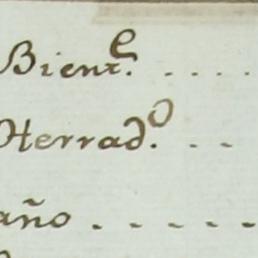 Bient.e ....
Herrad.o ...
año ......